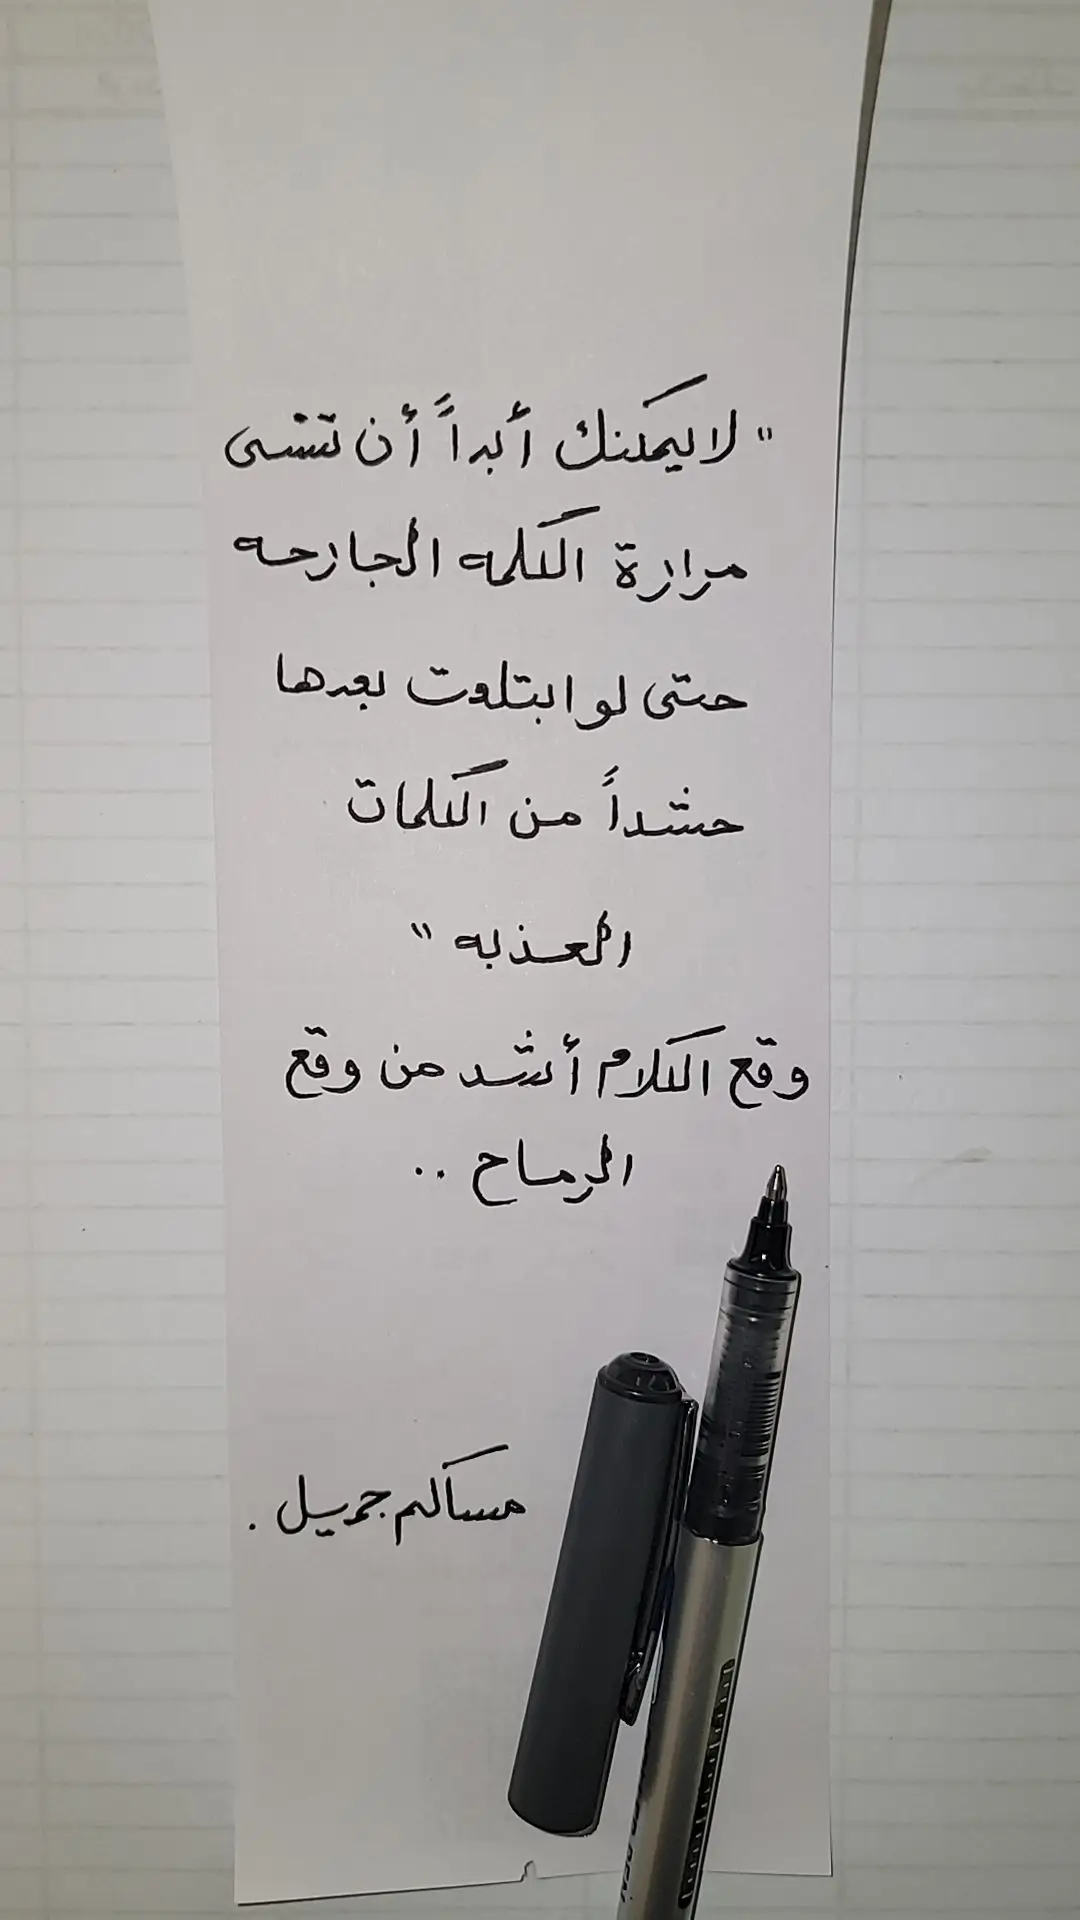 " لا يمكنك أبداً أن تنسى
مرارة الكلمه الجارحه
حتى لو ابتلعت بعدها
حشداً من الكلمات
العذبه "
وقع الكلام أشد من وقع
الرماح ..
مساكم جميل .